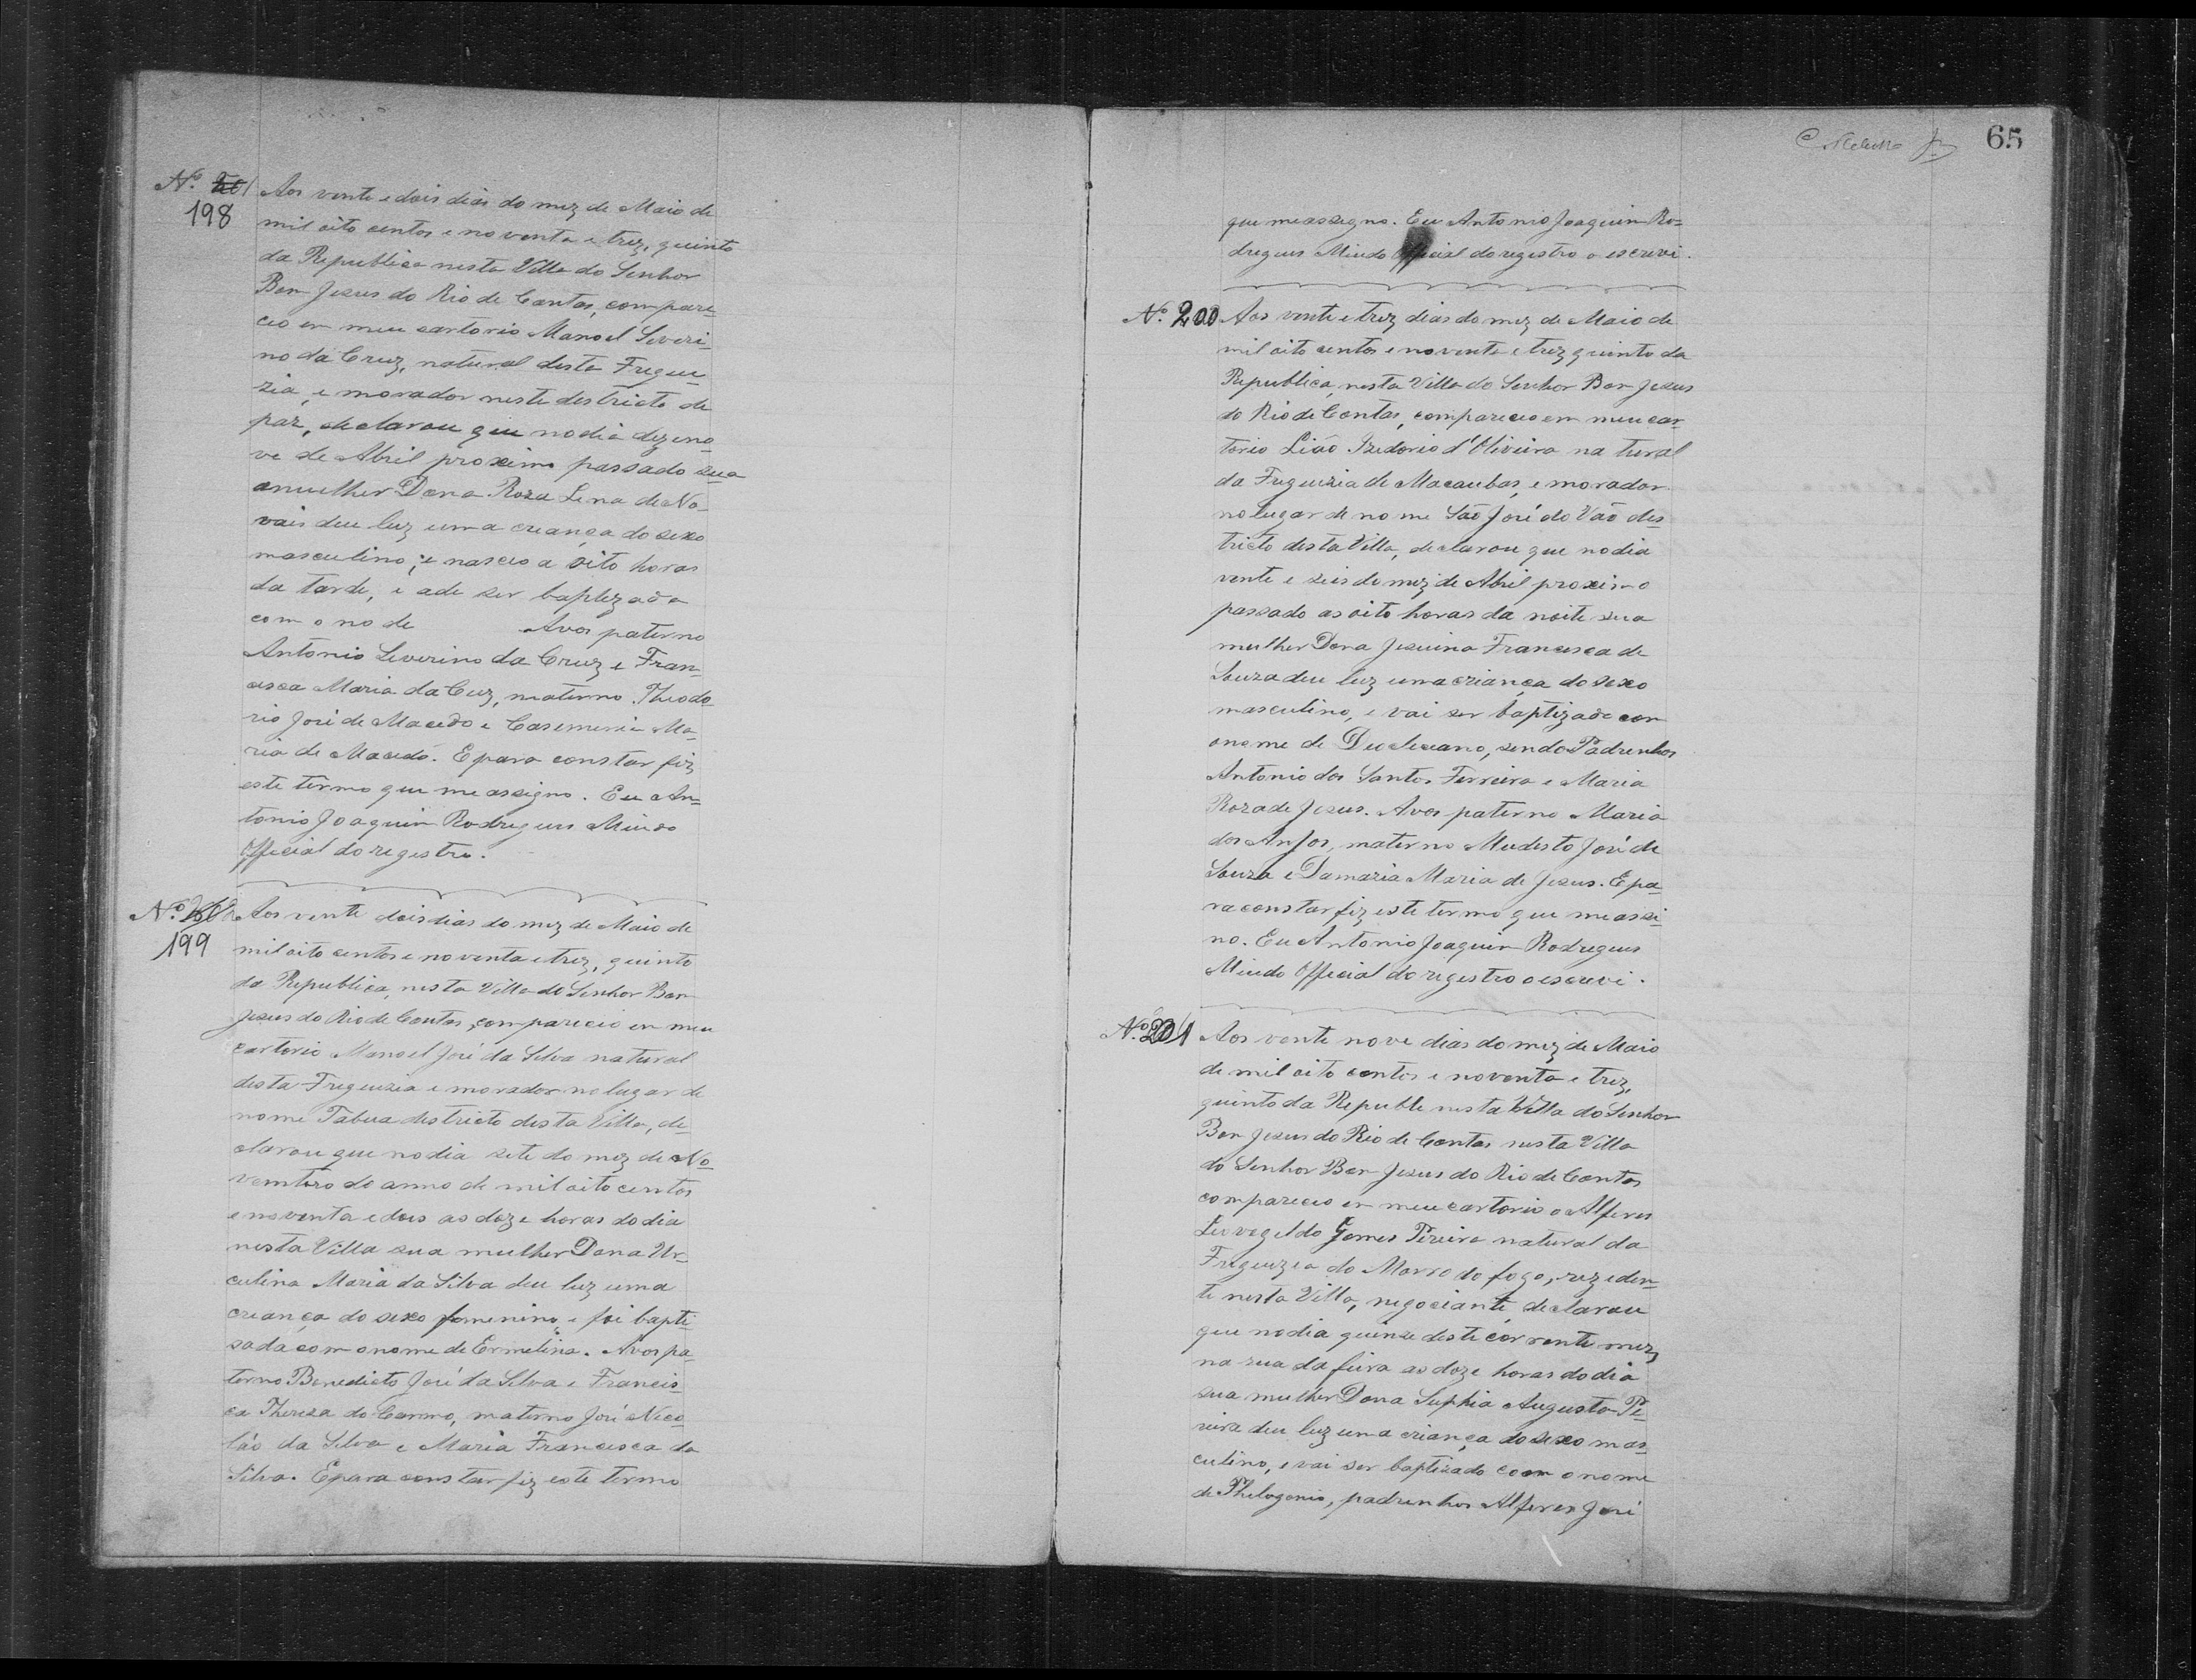 Nº 201
198
Aos vente e dois dias do mez de Maio de
mil oito centos e noventa e trez, quinto
da Republica nesta Villa do Senhor
Bom Jesus do Rio de Contas, compare-
ceo em meu cartorio Manoel Severi-
no da Cruz, natural desta Fregue-
zia, e morador neste destricto de
paz, declarou que no dia dezeno-
ve de Abril proximo passado sua
amulher Dona Roza Lena de No-
vais deu luz uma criança do sexo
masculino, e nasceo a oito horas
da tarde, e ade ser baptezada
com o no de Avos paterno
Antonio Severino da Cruz e Fran-
cisca Maria da Cuz, materno Theodo-
rio José de Macedo e Casemenia Ma-
ria de Macedo. E para constar fiz
este termo que me assigno. Eu An-
tonio Joaquim Rodrigues Miudo
Official do registro.
Nº
199
Aos vente dois dias do mez de Maio de
mil oito centos e noventa e trez, quinto
da Republica, nesta Villa do Senhor Bom
Jesus do Rio de Contas, compareceo em meu
cartorio Manoel José da Silva natural
desta Freguezia e morador no lugar de
nome Tabua destricto desta Villa, de-
clarou que no dia sete do mez de No-
vembro do anno de mil oito centos
e noventa e dois as doze horas do dia
nesta Villa sua mulher Dona Ur-
culina Maria da Silva deu luz uma
criança do sexo femenino, e foi bapti-
sada com o nome de Ermelina. Avos pa-
terno Benedicto José da Silva e Francis-
ca Thereza do Carmo, materno José Nico-
láo da Silva e Maria Francisca da
Silva. E para constar fiz este termo
65
que me assegno. Eu Antonio Joaquim Ro-
dregues Miudo Official do registro o escrevi.
Nº 200
Aos vente e trez dias do mez de Maio de
mil oito centos e noventa e trez quinto da
Republica, nesta Villa do Senhor Bom Jesus
do Rio de Contas, compareceo em meu car-
torio Lião Izedorio d'Oliveira na tural
da Freguizia de Macaubas, e morador
no lugar de nome São José do Vão des-
tricto desta Villa, declarou que no dia
vente e seis do mez de Abril proximo
passado as oito horas da noite sua
mulher Dona Jesuina Francisca de
Souza deu luz uma criança do sexo
masculino, e vai ser baptizado com
o nome de Deocleceano, sendo Padrenhos
Antonio dos Santos Ferreira e Maria
Roza de Jesus. Avos paterno Maria
dos Anjos, materno Modesto José de
Souza e Damazia Maria de Jesus. E pa-
ra constar fiz este termo que me assi-
no. Eu Antonio Joaquim Rodregues
Miudo Official do registro o escrevi.
Nº 201
Aos vente nove dias do mez de Maio
de mil oito centos e noventa e trez,
quinto da Republi nesta Villa do Senhor
Bom Jesus do Rio de Contas nesta Villa
do Senhor Bom Jesus do Rio de Contas
compareceo em meu cartorio o Alferes
Leovegeldo Gomes Pereira natural da
Freguezia do Morro do fogo, rezeden-
te nesta Villa, negociante, declarou
que no dia quinse deste corrente mez
na rua da feira as doze horas do dia
sua mulher Dona Suphia Augusta Pe-
reira deu luz uma criança do sexo mas-
culino, e vai ser baptisado com o nome
de Thelogonio, padrenhos Alferes José